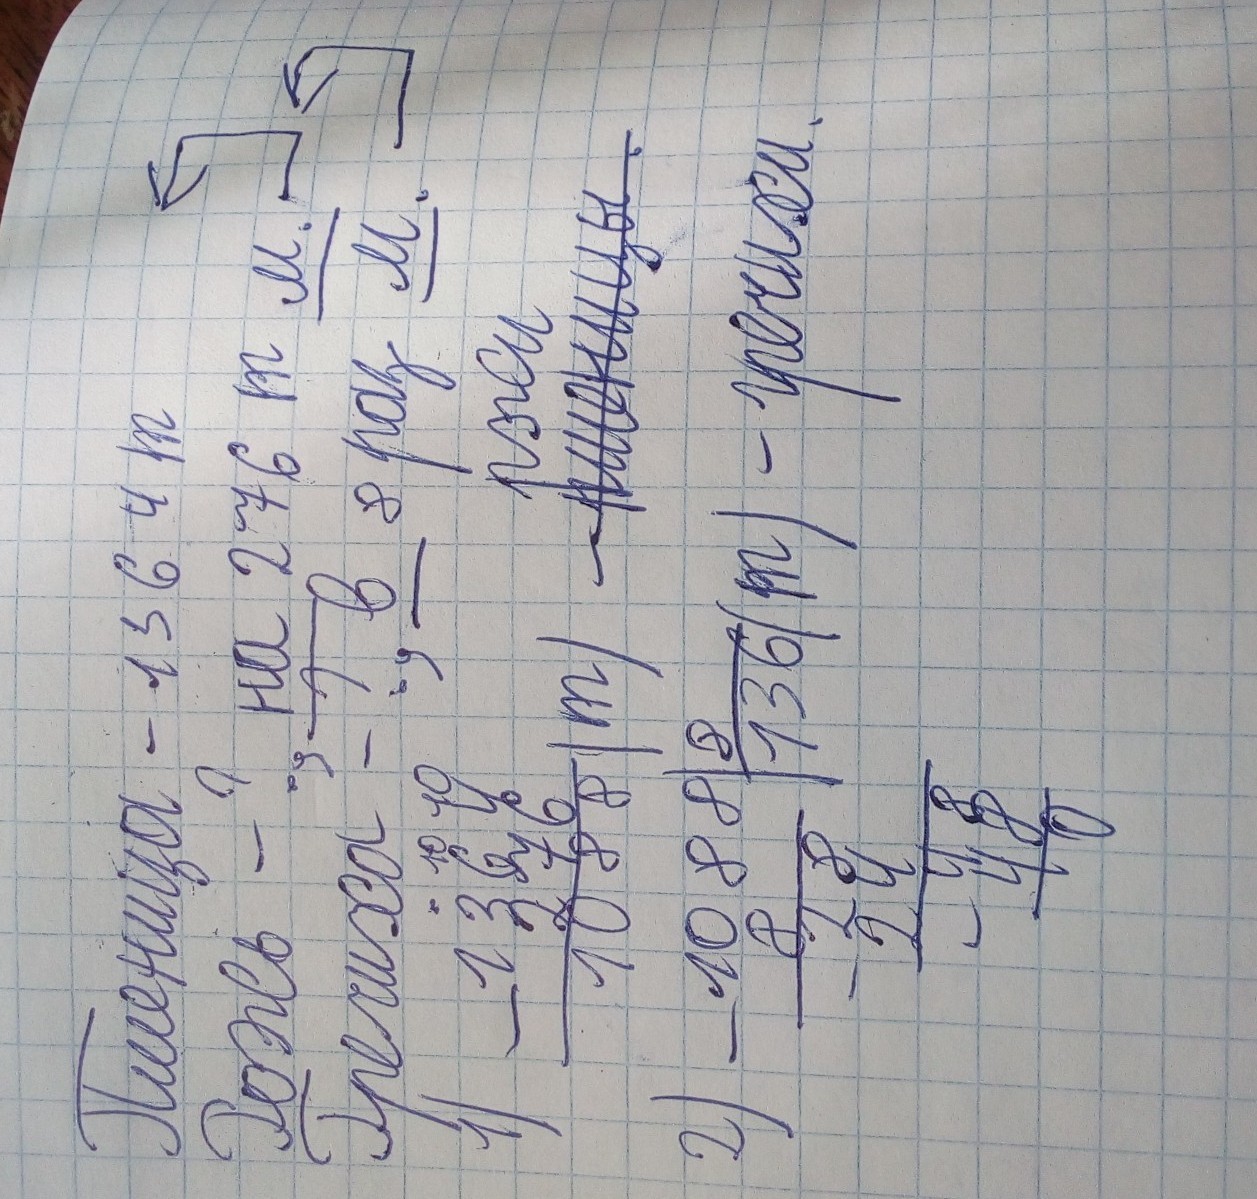 Пшеница - 1364 т
Рожь - ? на 276 т м.
Гречиха - ?, в 8 раз м.
10 10
1) - 1364
276
1088 (т) - ржи
пшеницы.
2) - 1088 | 8
8 136 (т) - гречихи.
- 28
24
- 48
48
0